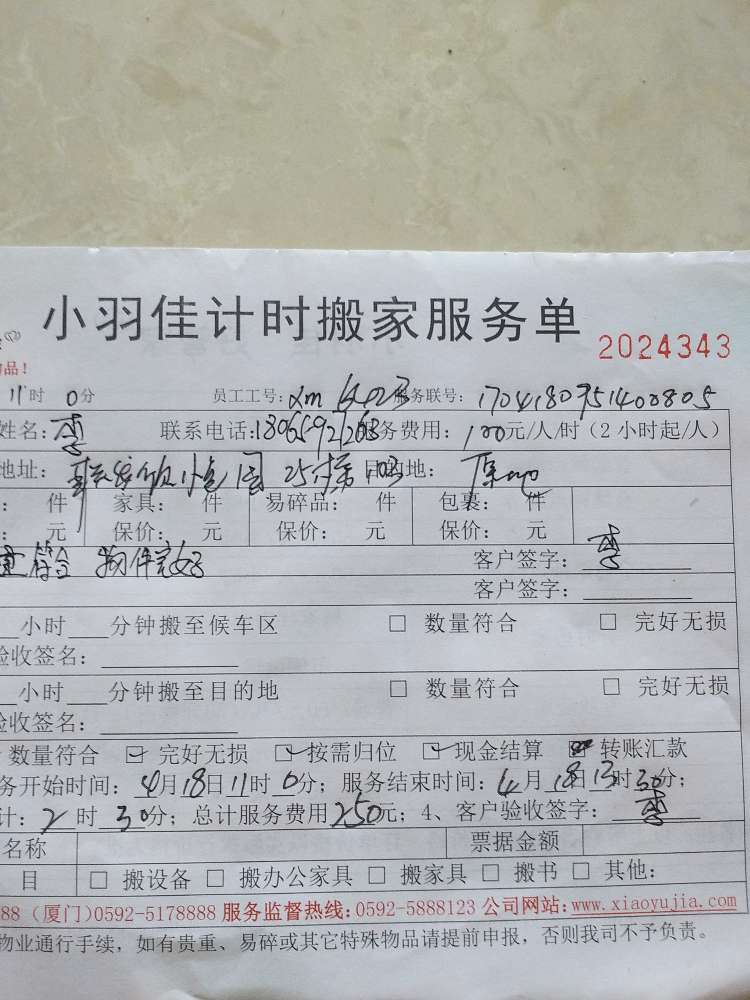 小羽佳计时搬家服务单
2024343
品！
11时 0分 员工工号： 服务联号：1704180751400805
姓名：李 联系电话：18065921263 服务费用：100元/人/时（2小时起/人）
地址： 25 目的地：
： 件 家具： 件 易碎品： 件 包裹： 件
： 元 保价： 元 保价： 元 保价： 元
符合 物件完好 客户签字：李
客户签字：
小时 分钟搬至候车区 □ 数量符合 □ 完好无损
验收签名：
小时 分钟搬至目的地 □ 数量符合 □ 完好无损
验收签名：
数量符合 ☑ 完好无损 ☑ 按需归位 ☑ 现金结算 转账汇款
务开始时间：4月18日11时0分；服务结束时间：4月18日13时30分；
计：2时30分；总计服务费用250元；4、客户验收签字：李
名称 票据金额
目 □ 搬设备 □ 搬办公家具 □ 搬家具 □ 搬书 □ 其他：
88（厦门）0592-5178888 服务监督热线：0592-5888123 公司网站：www.xiaoyujia.com
物业通行手续，如有贵重、易碎或其它特殊物品请提前申报，否则我司不予负责。